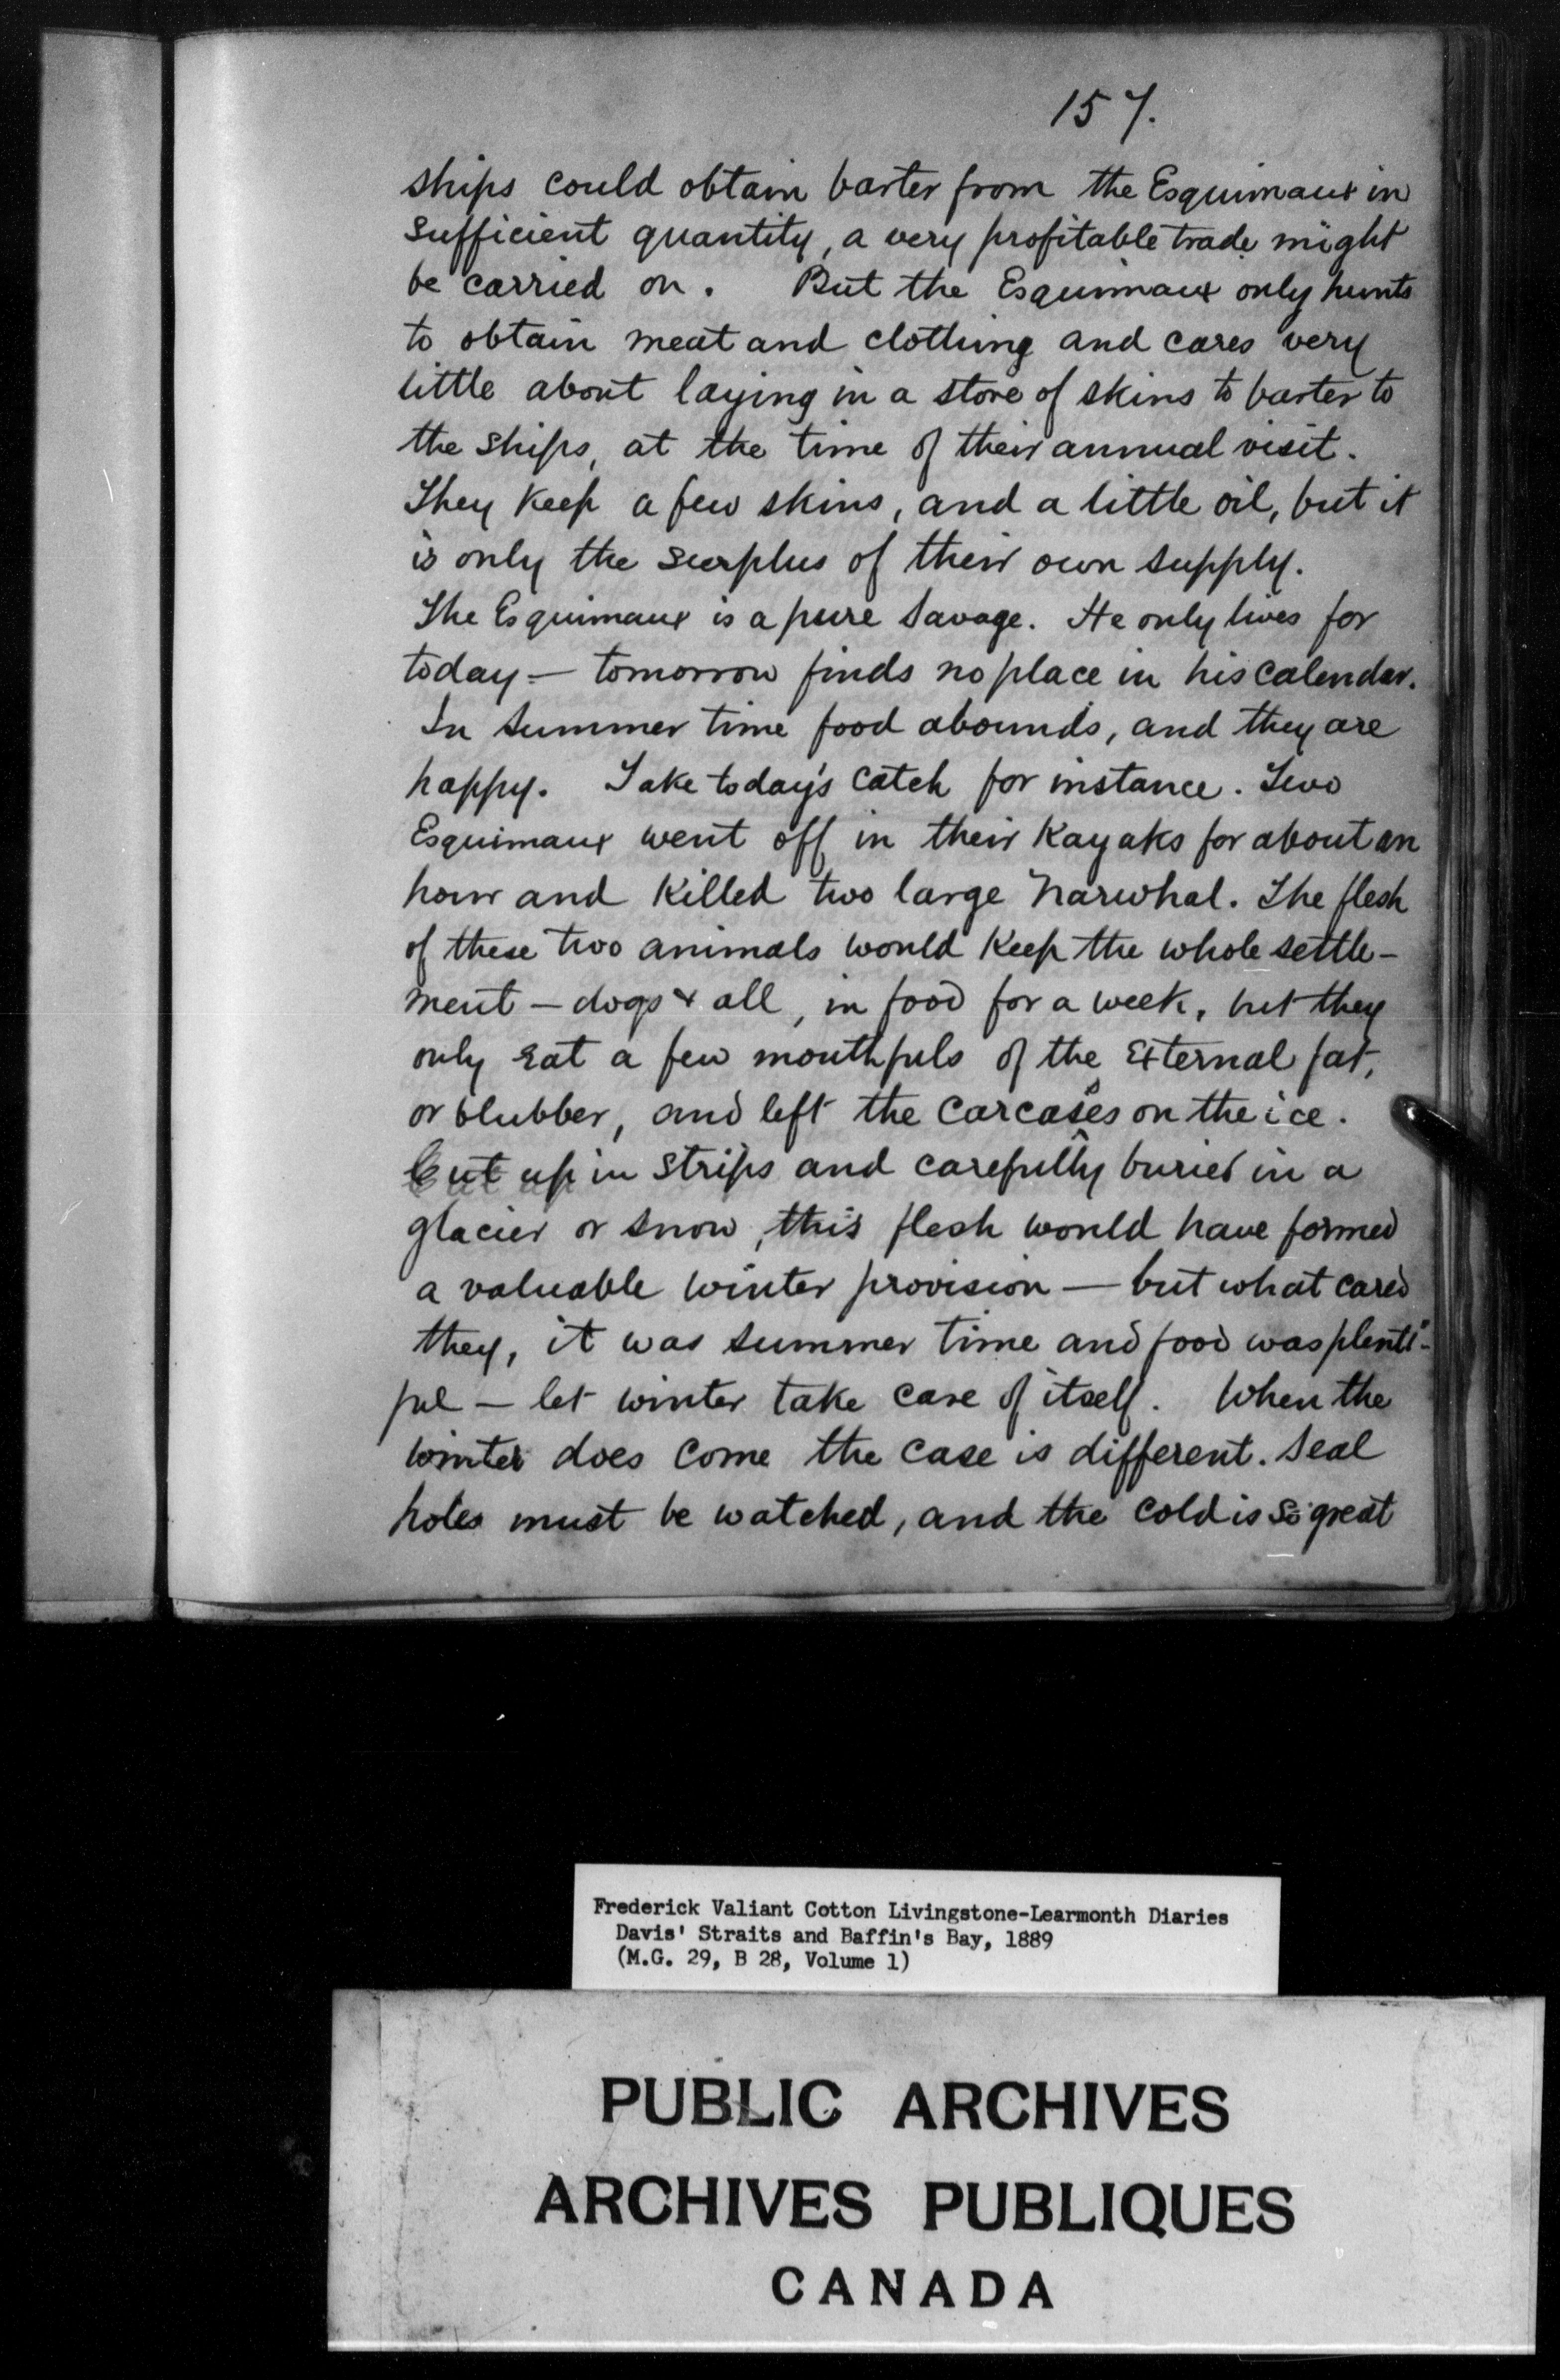 157.
ships could obtain barter from the Esquimaux in
sufficient quantity, a very profitable trade might
be carried on. But the Esquimaux only hunts
to obtain meat and clothing and cares very
little about laying in a store of skins to barter to
the ships, at the time of their annual visit.
They keep a few skins, and a little oil, but it
is only the surplus of their own supply.
The Esquimaux is a pure savage. He only lives for
today — tomorrow finds no place in his calendar.
In summer time food abounds, and they are
happy. Take today's catch for instance. Two
Esquimaux went off in their Kayaks for about an
hour and killed two large Narwhal. The flesh
of these two animals would keep the whole settle-
ment — dogs & all, in food for a week, but they
only eat a few mouthfuls of the external fat,
or blubber, and left the carcasses on the ice.
Cut up in strips and carefully buried in a
glacier or snow, this flesh would have formed
a valuable winter provision — but what cared
they, it was summer time and food was plenti-
ful — let winter take care of itself. When the
winter does come the case is different. Seal
holes must be watched, and the cold is so great
Frederick Valiant Cotton Livingstone-Learmonth Diaries
Davis' Straits and Baffin's Bay, 1889
(M.G. 29, B 28, Volume 1)
PUBLIC ARCHIVES
ARCHIVES PUBLIQUES
CANADA